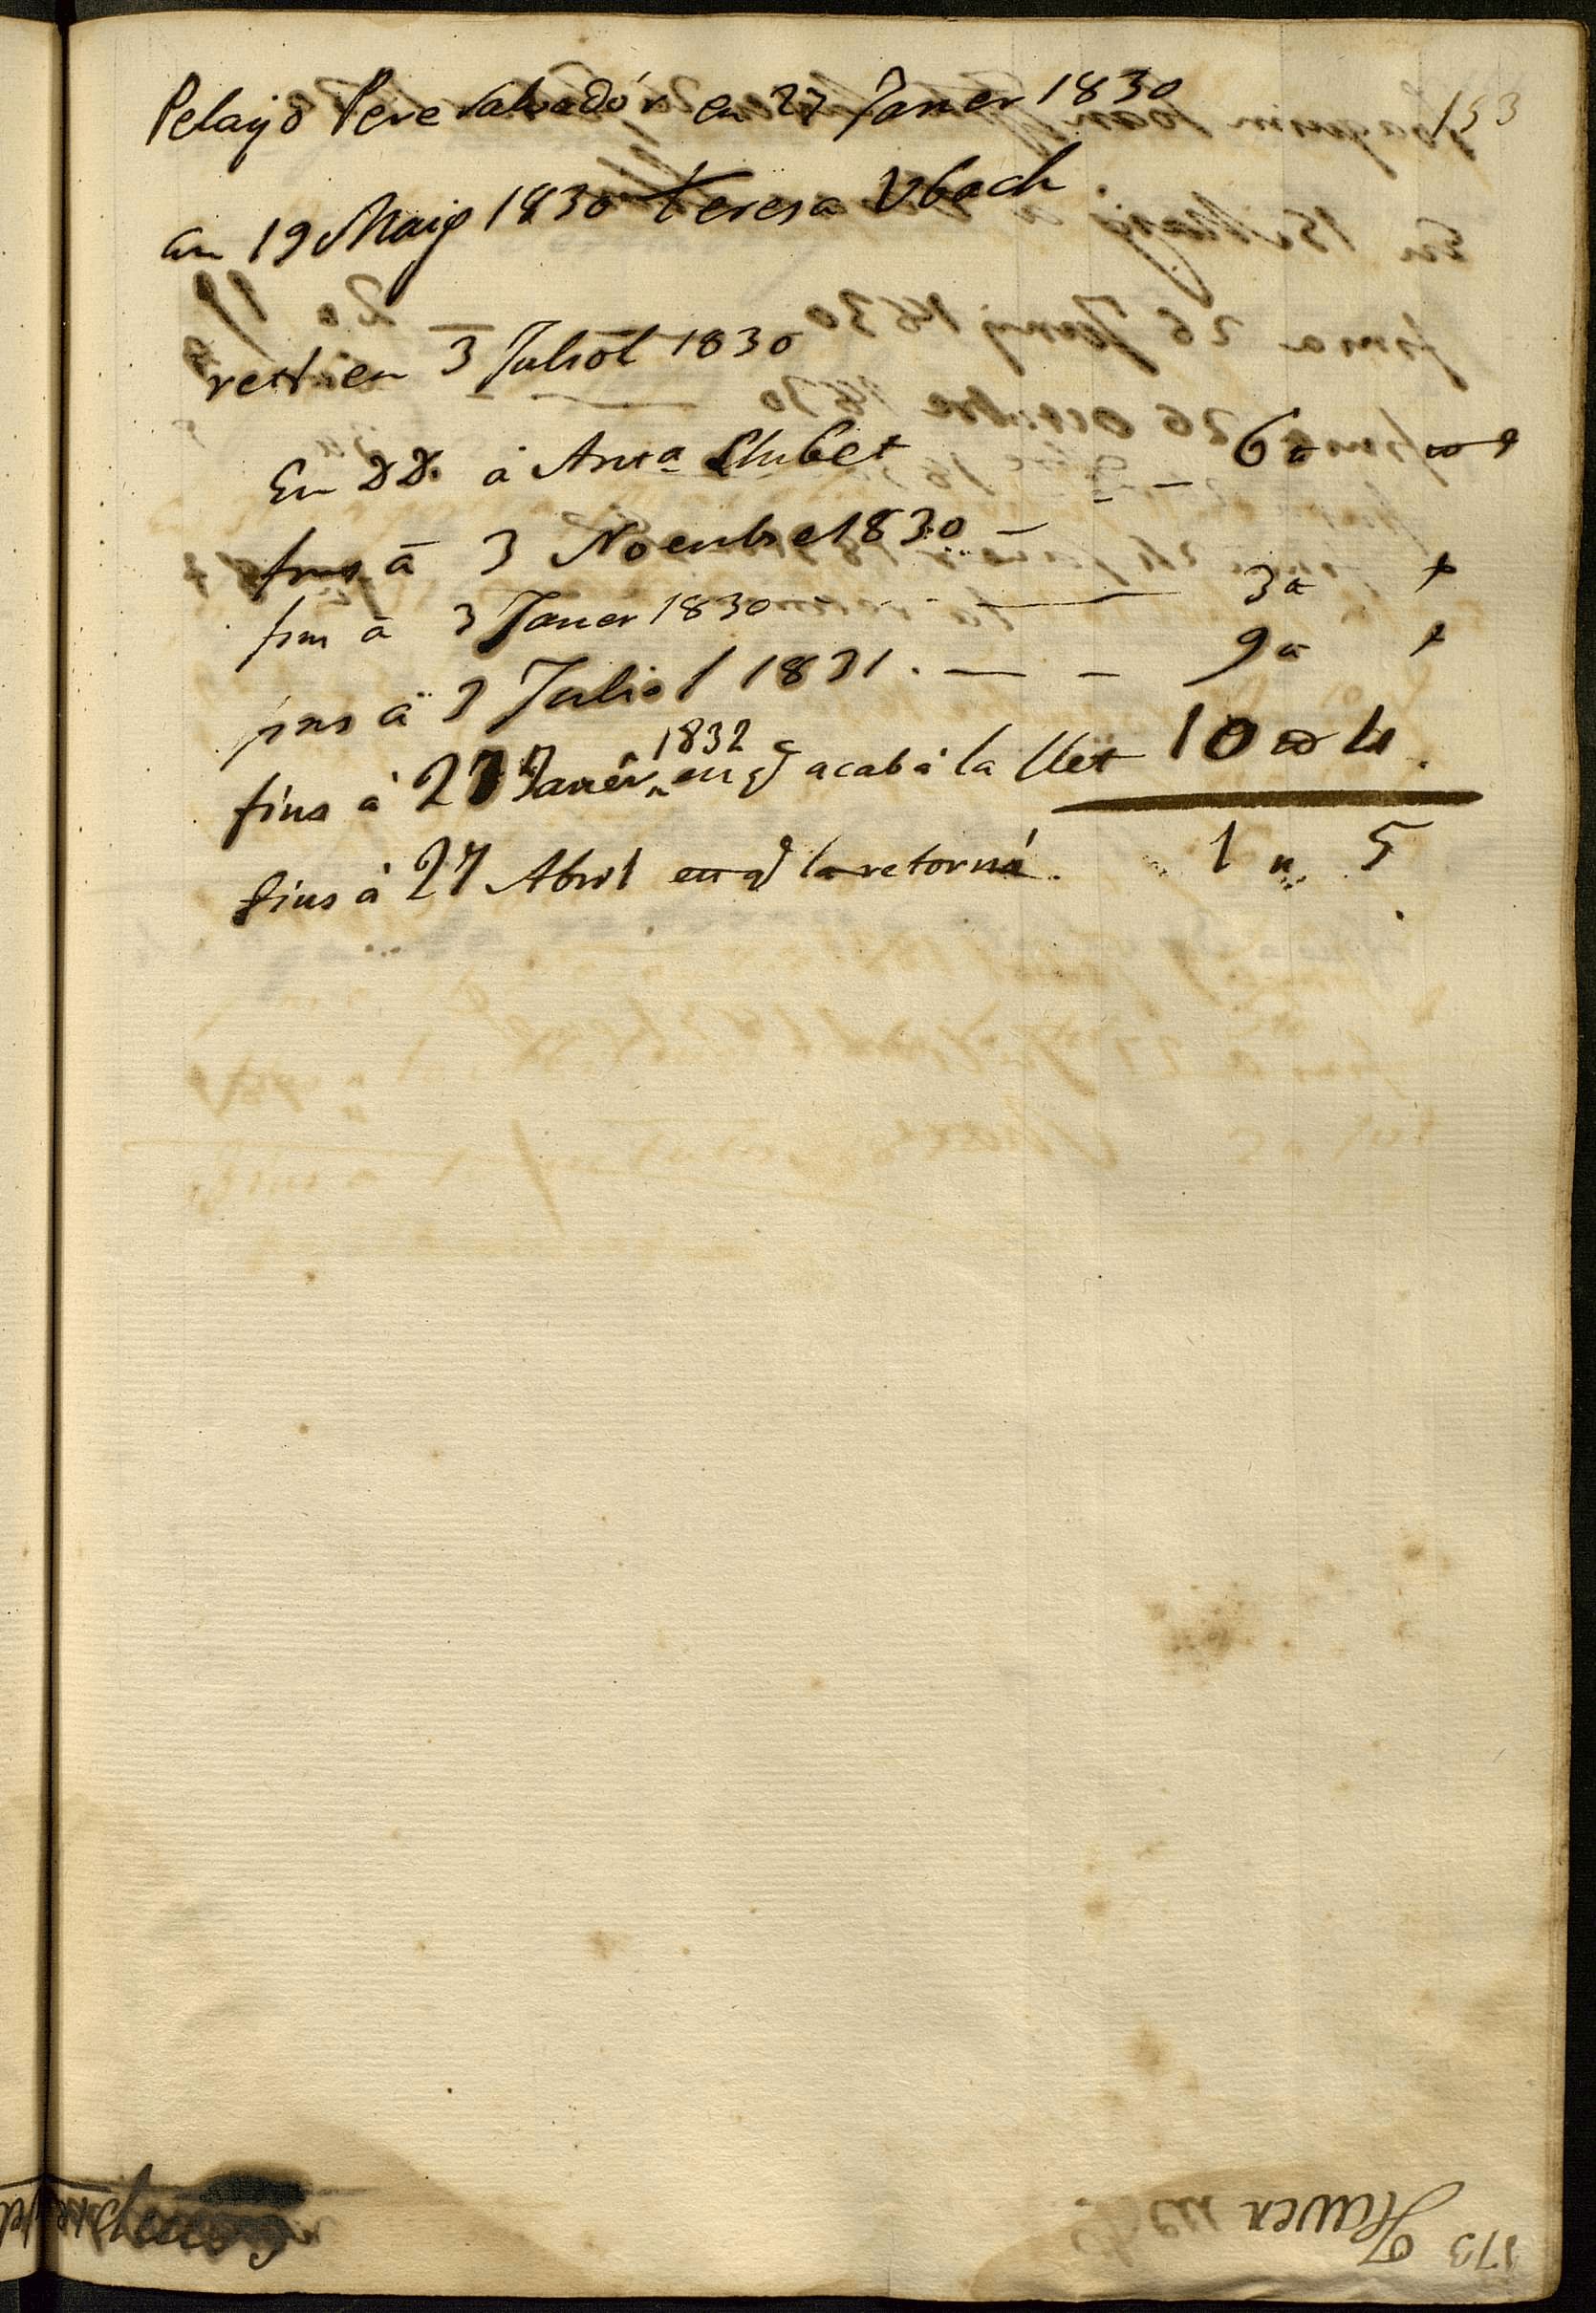 153
Pelayo Pere Salvadór en 27 Janer 1830
en 19 Maig 1830 Teresa Vbach
rest en 3 Juliol 1830
En DD. á Anta Llubet
fins á 3 Noembre 1830 — 6 a
fins á 3 Janer 1830 — 3 a
fins á 3 Juliol 1831 . — — 9 a
fins á 27 Janér 1832 en q acabá la llet 10 4
fins á 27 Abril en q la retorná. 1 " 5
173